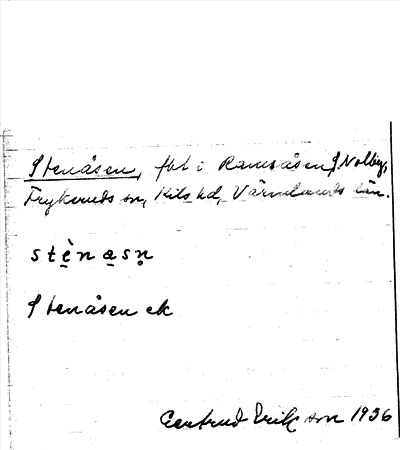 Stenåsen, fbt i Ramsåsen, S Nolby,
Frykeruds sn, Kils hd, Värmlands län.
stè̱na̱sn̥
Stenåsen ek
Gertrud Erikson 1936